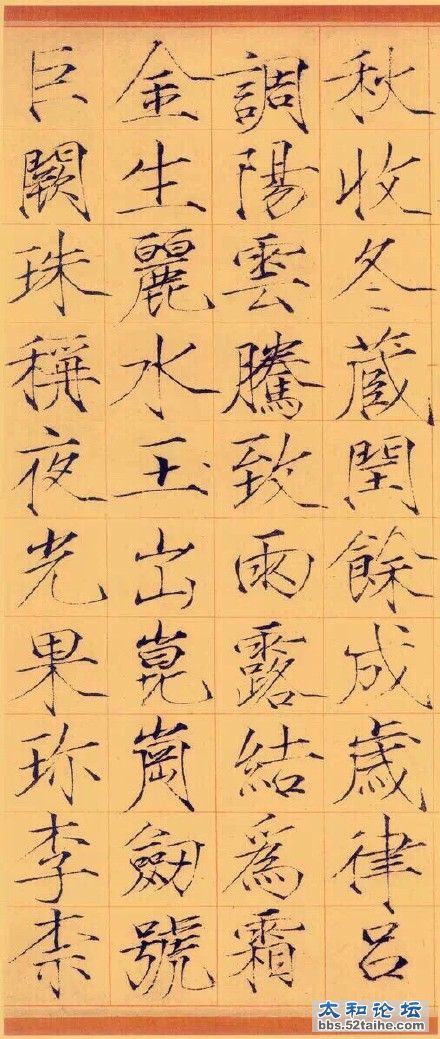 秋收冬蔵閏餘成歲律呂
調陽雲騰致雨露結爲霜
金生麗水玉出崑崗劒號
巨闕珠稱夜光果珎李柰
太和论坛
bbs.52taihe.com